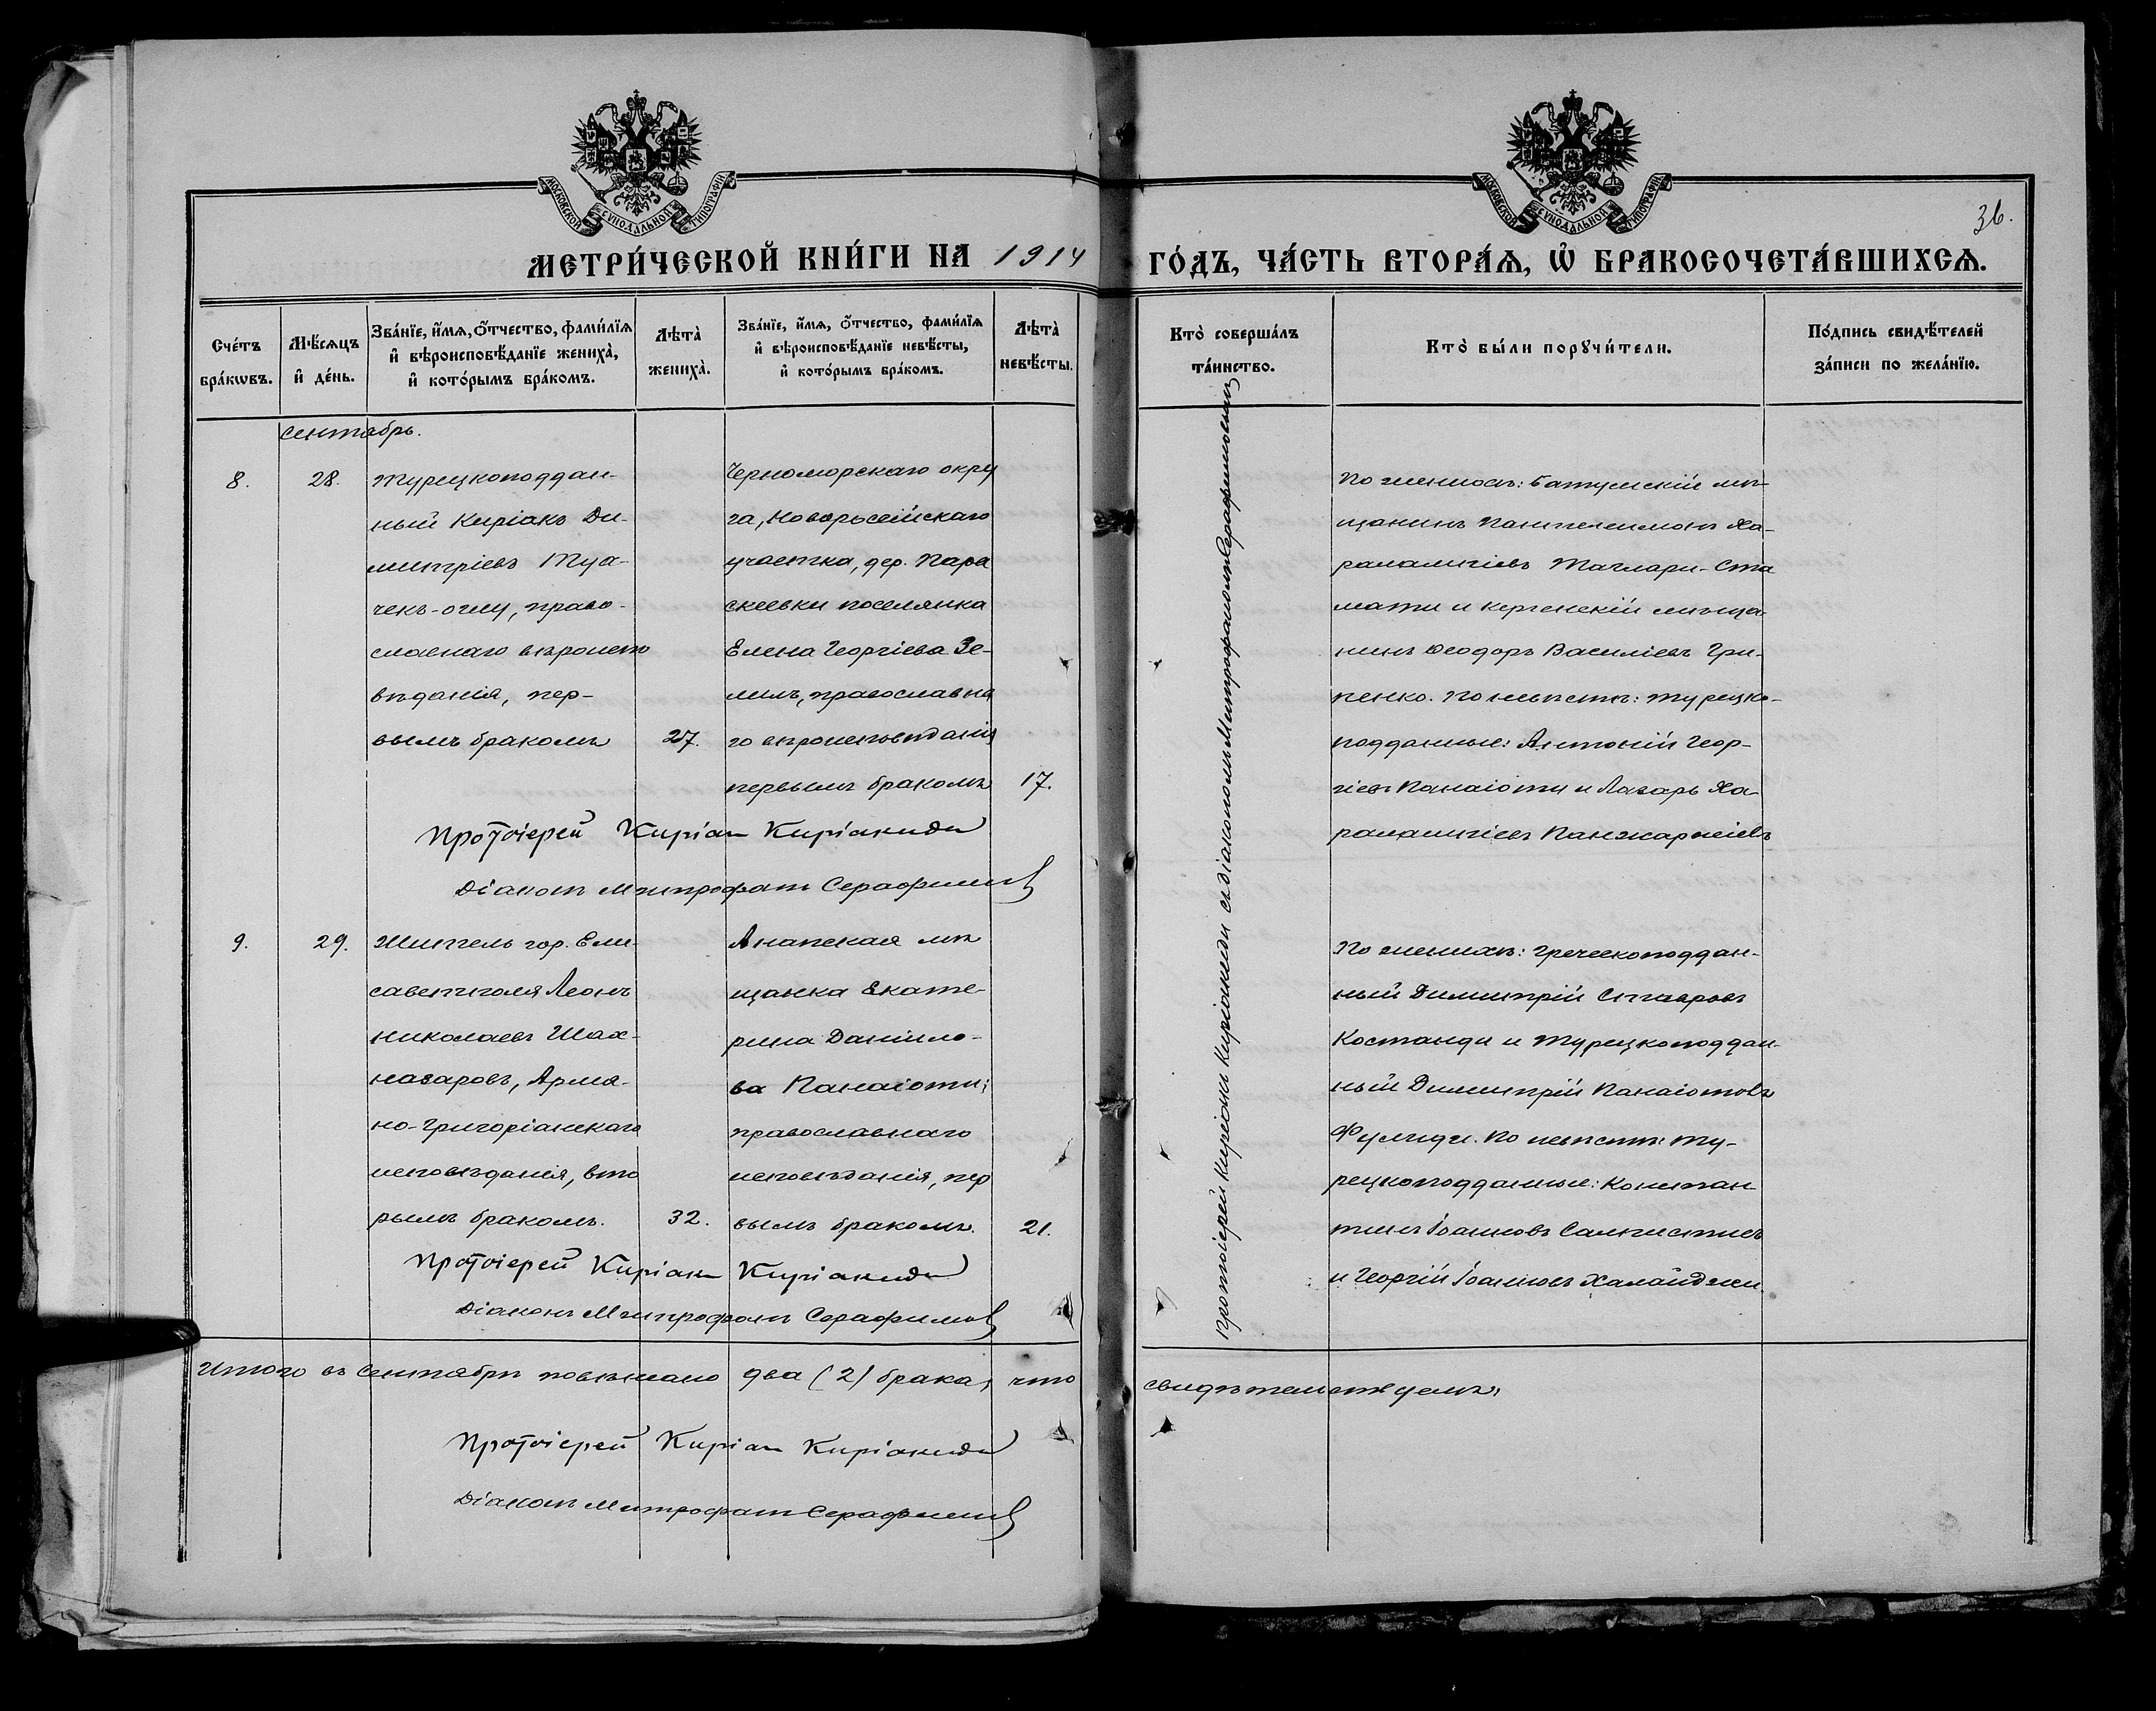 МОСКОВСКОЙ СѴНОДАЛЬНОЙ ТИПОГРАФІИ
МОСКОВСКОЙ СѴНОДАЛЬНОЙ ТИПОГРАФІИ
36.
МЕТРИ́ЧЕСКОЙ КНИ́ГИ НА 1914 ГО́ДЪ, ЧА́СТЬ ВТОРА́Я, Ѡ БРАКОСОЧЕТА́ВШИХСЯ.
Сче́тъ бра́кѡвъ.
Мѣ́сяцъ и҆ де́нь.
Зва́нїе, и҆́мя, ѻ҆́тчество, фами́лїя
и҆ вѣроисповѣ́данїе жениха̀,
и҆ кото́рымъ бра́комъ.
Лѣта̀ жениха̀.
Зва́нїе, и҆́мя, ѻ҆́тчество, фами́лїя
и҆ вѣроисповѣ́данїе невѣ́сты,
и҆ кото́рымъ бра́комъ.
Лѣта̀ невѣ́сты.
Кто̀ соверша́лъ та́инство.
Кто̀ бы́ли порꙋчи́тели.
По́дпись свидѣ́телей
за́писи по жела́нїю.
Сентябрь.
8.
28.
Турецкоподдан-
ный Киріакъ Ди-
митріевъ Туа-
чекъ-оглу, право-
славнаго вѣроиспо
вѣданія, пер-
вымъ бракомъ
27.
Черноморскаго окру
га, Новоросейскаго
участка, дер. Пара
скеевки поселянка
Елена Георгіева Зе-
лилъ, православна
го вѣроисповѣданія
первымъ бракомъ
17.
Протоіерей Киріакъ Киріакиди съ діакономъ Митрофаномъ Серафимовымъ
По женихѣ: Батумскій мѣ-
щанинъ Пантелеимонъ Ха-
рлампіевъ Стаматіи
мати и керченскій мѣща-
нинъ Ѳеодоръ Василіевъ Гри-
ценко. По невѣстѣ: турецко-
подданные: Антоній Геор-
гіевъ Панаіоти и Лазарь Ха-
ралампіевъ
Протоіерей Киріакъ Киріакиди
Діаконъ Митрофанъ Серафимовъ
9.
29.
Житель гор. Ели-
саветполя Леонъ
Николаевъ Шах-
назаровъ, Армя-
но-Григоріанскаго
исповѣданія, вто
рымъ бракомъ.
32.
Анапская мѣ
щанка Екате-
рина Даніило-
ва Панаіоти;
православнаго
исповѣданія, пер
вымъ бракомъ.
21.
По женихѣ: греческоподдан-
ный Димитрій Ставровъ
Костанди и Турецкоподдан-
ный Димитрій Панаіотовъ
Фулиди. По невѣстѣ: ту-
рецкоподданные: Констан
тинъ Іоанновъ
и Георгій Іоанновъ Халайджи.
Протоіерей Киріакъ Киріакиди
Діаконъ Митрофанъ Серафимовъ
Итого въ Сентябрѣ повѣнчано два (2) брака, что свидѣтельствуемъ:
Протоіерей Киріакъ Киріакиди
Діаконъ Митрофанъ Серафимовъ